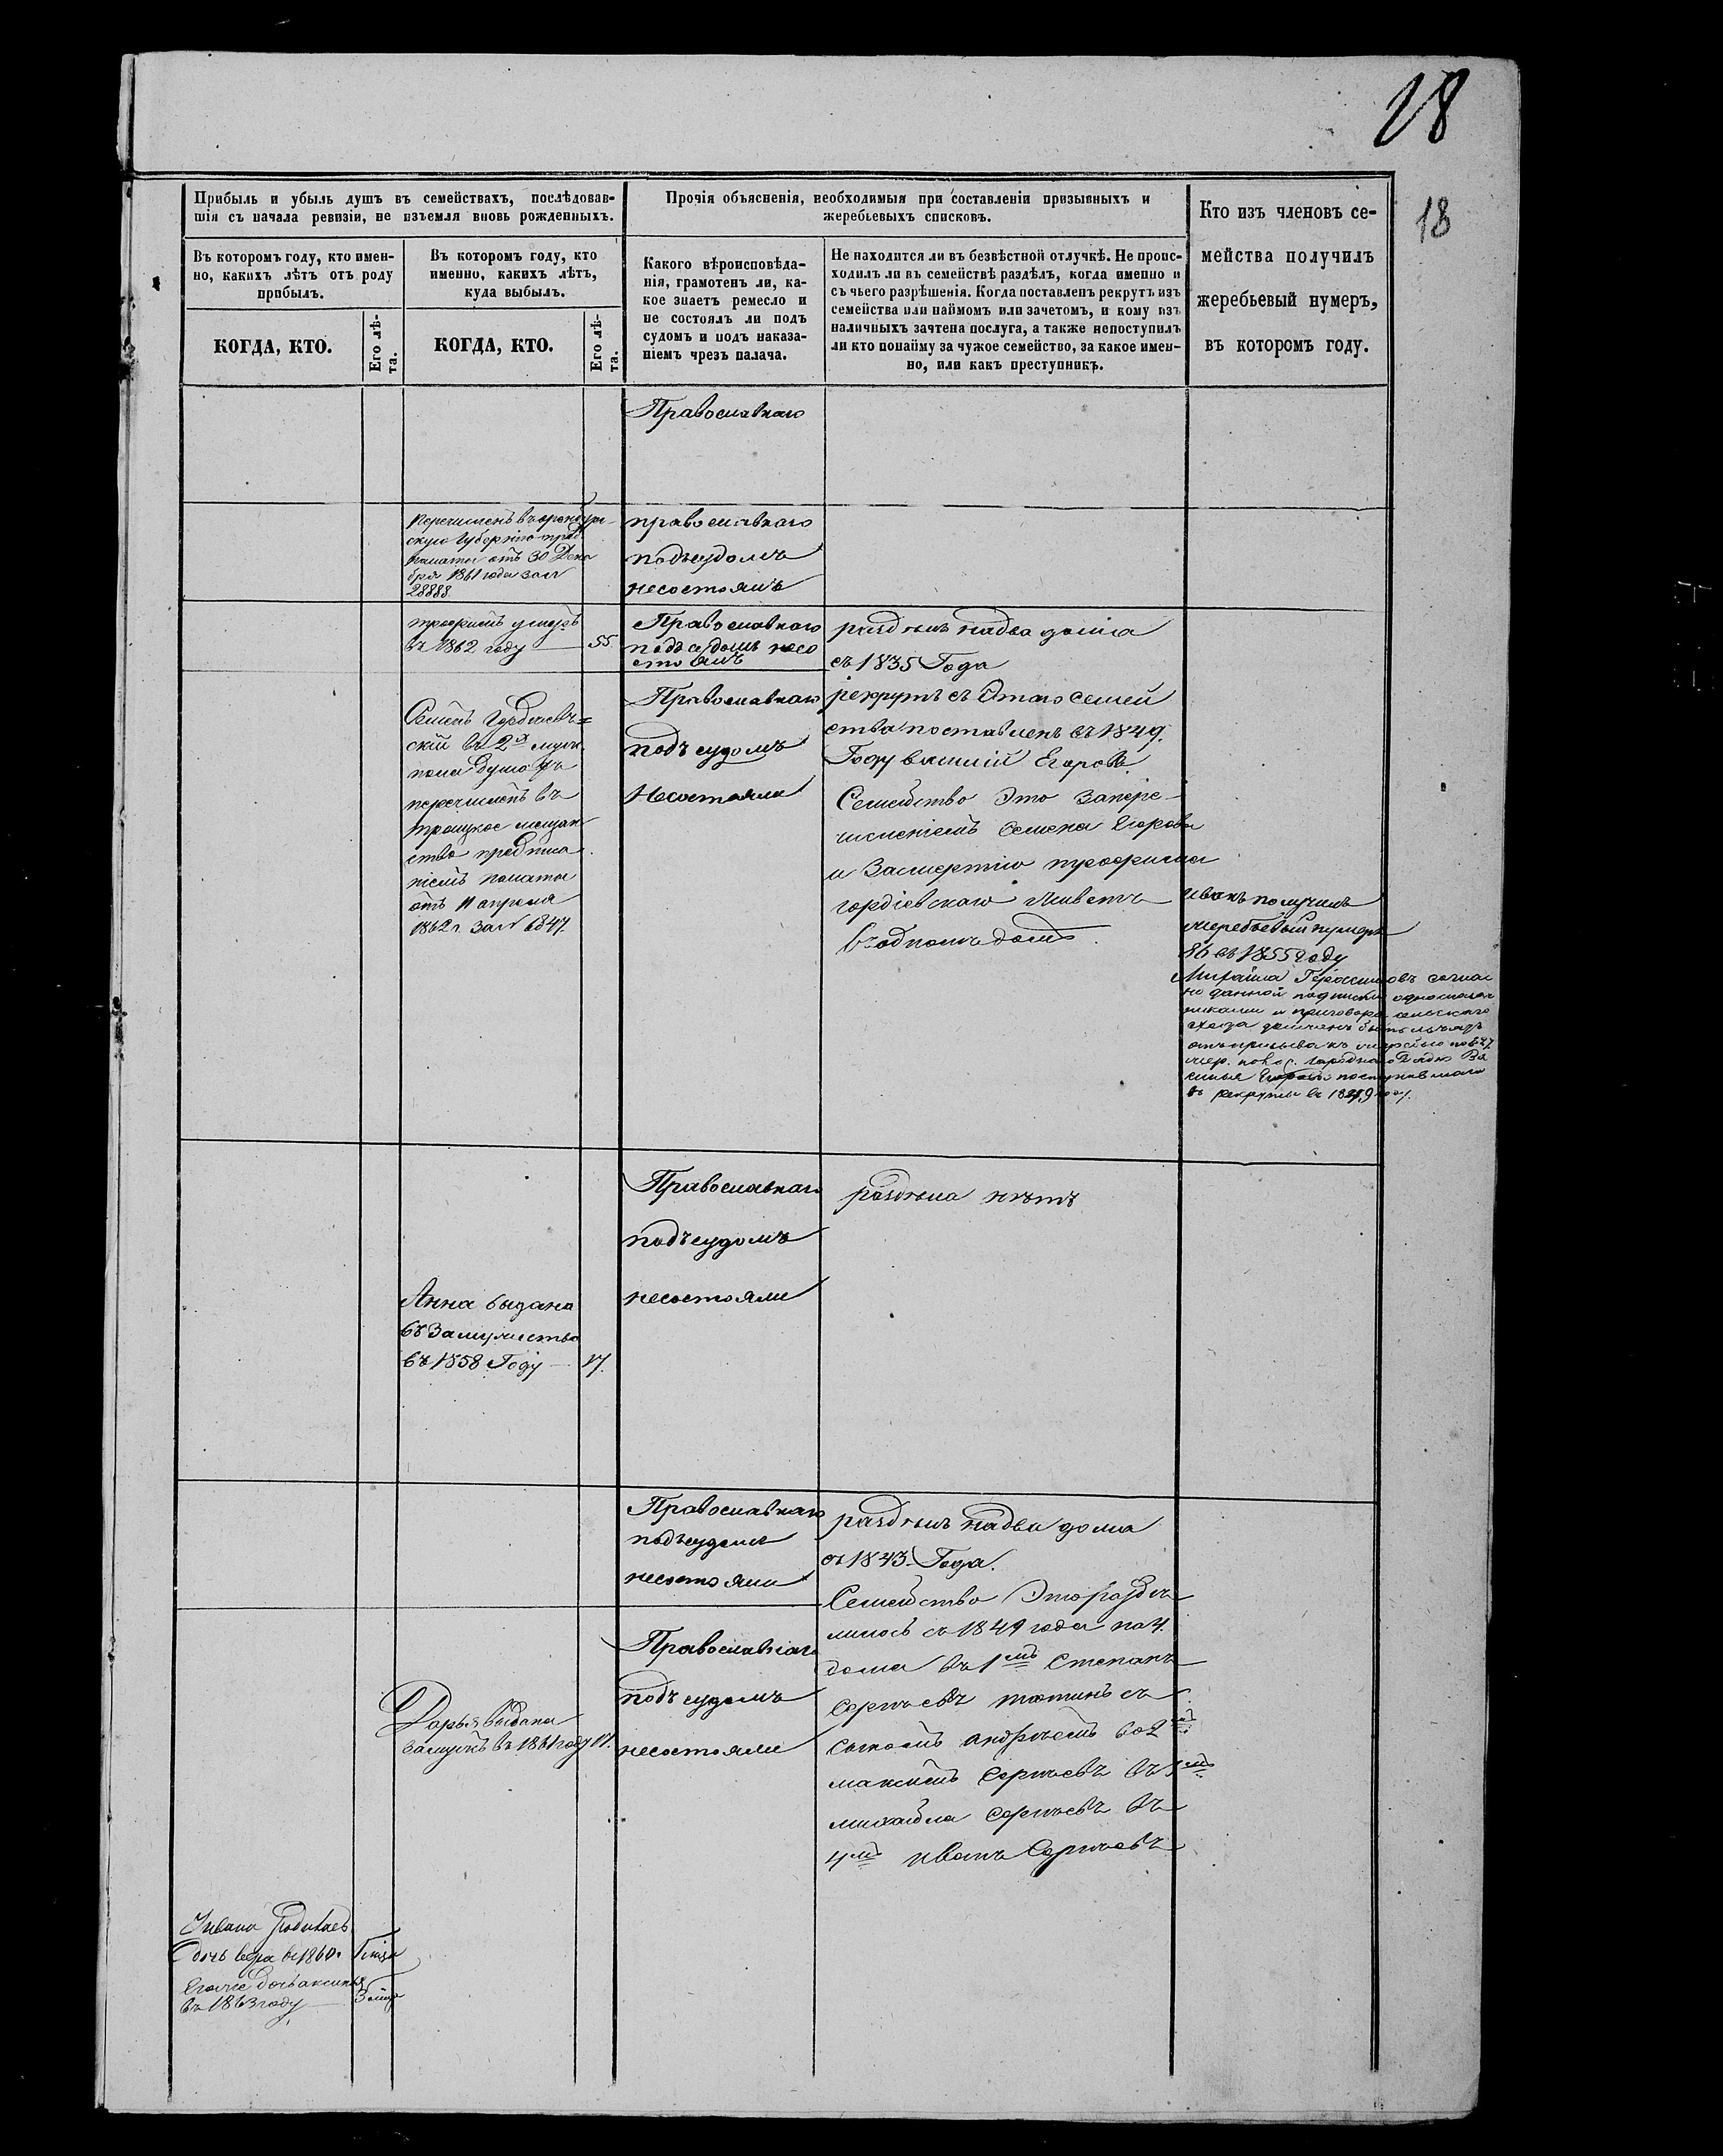 18
18
Прибыль и убыль душъ въ семействахъ, послѣдовав-
шія съ начала ревизіи, не изъемля вновь рожденныхъ.
Прочія объясненія, необходимыя при составленіи призывныхъ и
жеребьевыхъ списковъ.
Кто изъ членовъ се-
мейства получилъ
жеребьевый нумеръ,
въ которомъ году.
Въ которомъ году, кто имен-
но, какихъ лѣтъ отъ роду
прибылъ.
Въ которомъ году, кто
именно, какихъ лѣтъ,
куда выбылъ.
Какого вѣроисповѣда-
нія, грамотенъ ли, ка-
кое знаетъ ремесло и
не состоялъ ли подъ
судомъ и подъ наказа-
ніемъ чрезъ палача.
Не находится ли въ безвѣстной отлучкѣ. Не проис-
ходилъ ли въ семействѣ раздѣлъ, когда именно и
съ чьего разрѣшенія. Когда поставленъ рекрутъ изъ
семейства или наймомъ или зачетомъ, и кому изъ
наличныхъ зачтена послуга, а также непоступилъ
ли кто понайму за чужое семейство, за какое имен-
но, или какъ преступникъ.
КОГДА, КТО.
Его лѣ-
та.
КОГДА, КТО.
Его лѣ-
та.
Православнаго
перечисленъ въ оренбург-
скую Губернію пред
палаты отъ 30 Дека
бря 1861 года за №
28888
православнаго
подъсудомъ
несостоялъ
трофимъ умеръ
въ 1862 году 55
Православнаго
подъ судомъ несо
стоялъ
раздѣлъ надва дома
съ 1835 Года
Семенъ Гордіевъ=
скій въ 2х муж.
пола душахъ
перечисленъ въ
троицкое мещан
ство предписа
ніемъ палаты
отъ 11 апреля
1862 г. за №
Православнаго
подъ судомъ
Несостояли
рекрутъ съ Этаго Семей
ства поставленъ въ 1849.
Году василій Егоровъ.
Семейство Это Запере-
численіемъ Семена Егорова
и Засмертію трофима
гордіевскаго живетъ
въодномъ домѣ.
иванъ получилъ
жеребьевый нумеръ
86 въ 1855 году
Михайла Герасимовъ соглас
но данной подписки
и приговора сельскаго
схода долженъ быть
отъ призыва къ жеребью
Ва
силья Егорова поступившаго
въ рекруты въ 1849 году.
Православнаго
подъсудомъ
несостояли
раздѣла нѣтъ
Анна выдана
въ Замужство
въ 1858 Году 17.
Православнаго
подъсудомъ
несостояли
раздѣлъ надва дома
съ 1843. Года.
Дарья выдана
замужъ въ 1861 году 17.
Православнаго
подъ судомъ
несостояли
Семейство Это раздѣ
лилось съ 1849 года на 4.
дома въ 1мъ Степанъ
Сергѣевъ съ
сыномъ андрѣемъ во 2мъ
максимъ Сергѣевъ въ 3мъ
михайла Сергѣевъ въ
4мъ иванъ Сергѣевъ
Уивана родилась
дочь вера въ 1860.
Егоже дочь аксинья
въ 1863 году